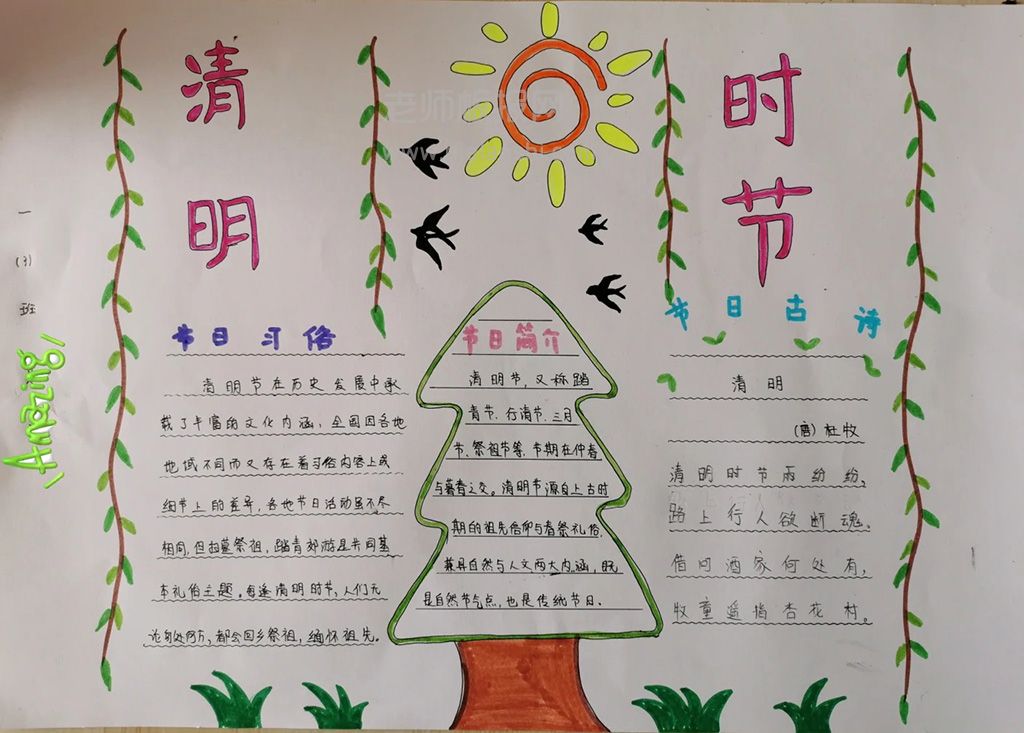 清明
时节
一(3)班
Amazing
节日习俗
清明节在历史发展中承
载了丰富的文化内涵，全国因各地
地域不同而又存在着习俗内容上或
细节上的差异，各地节日活动虽不尽
相同，但扫墓祭祖，踏青郊游是共同基
本礼俗主题。每逢清明时节，人们无
论身处何方，都会回乡祭祖，缅怀祖先。
节日简介
清明节，又称踏
青节、行清节、三月
节、祭祖节等，节期在仲春
与暮春之交。清明节源自上古时
期的祖先信仰与春祭礼俗，
兼具自然与人文两大内涵，既
是自然节气点，也是传统节日。
节日古诗
清明
(唐)杜牧
清明时节雨纷纷，
路上行人欲断魂。
借问酒家何处有，
牧童遥指杏花村。